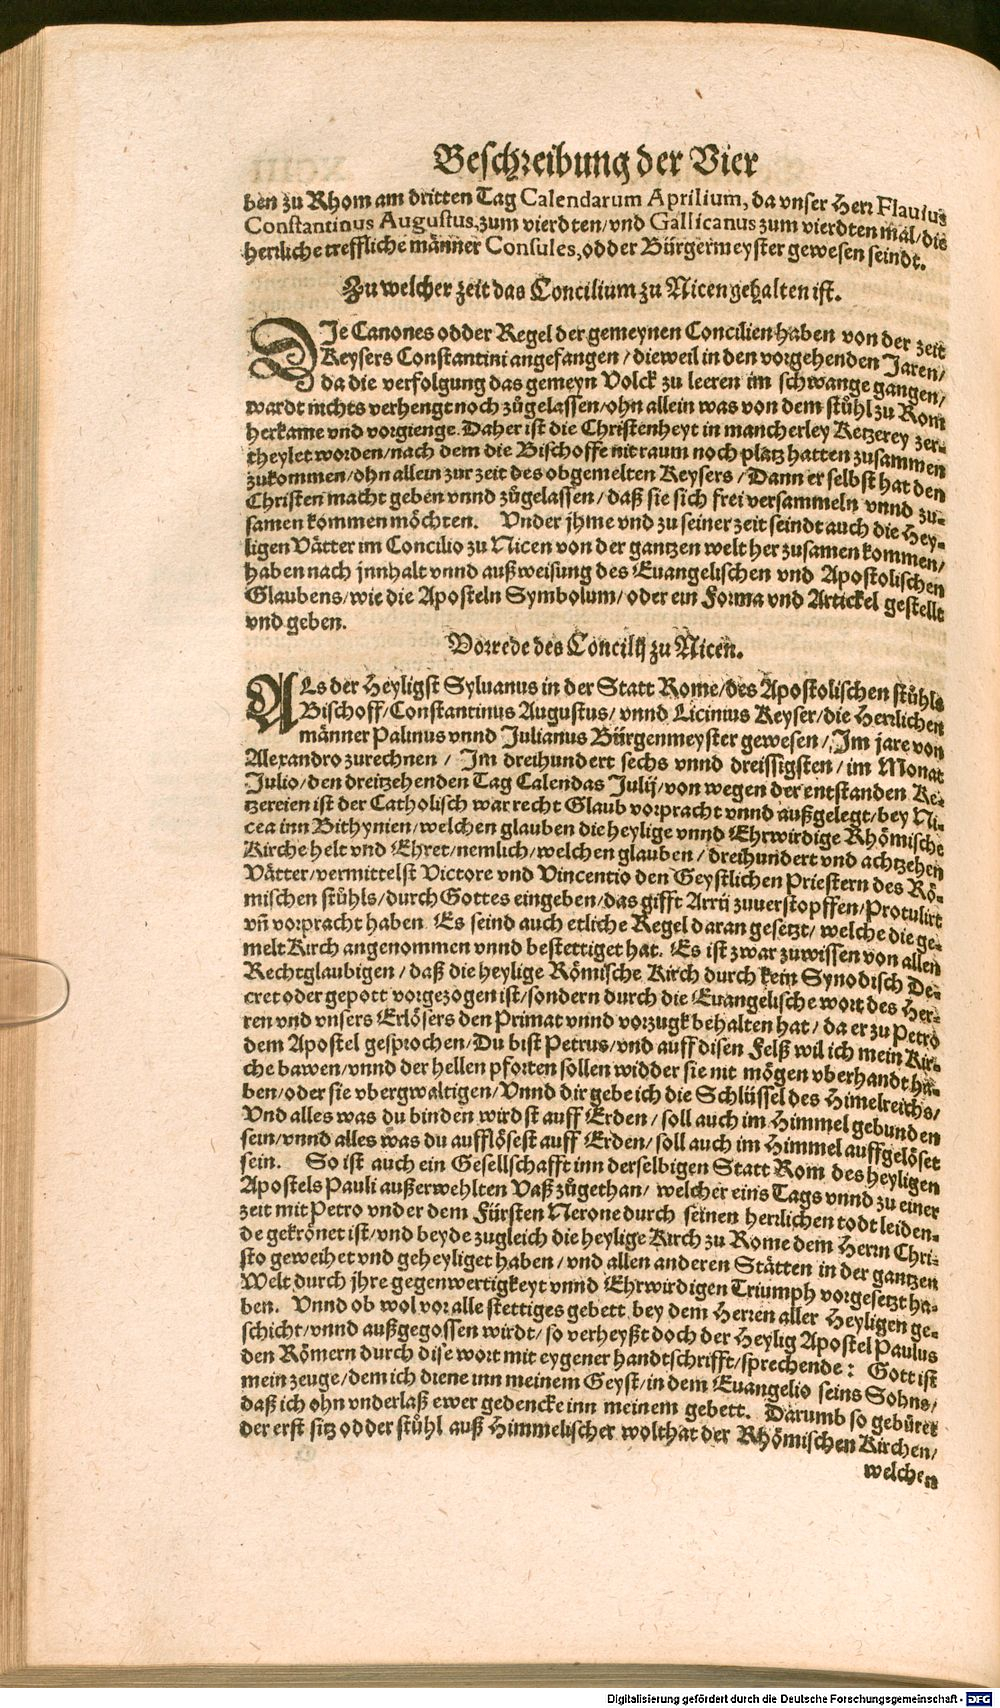 Beschreibung der Vier
ben zu Rhom am dritten Tag Calendarum Aprilium, da vnser Herr Flauius
Constantinus Augustus, zum vierdten/ vnd Gallicanus zum vierdten mal/ die
herrliche treffliche männer Consules, odder Bürgermeyster gewesen seindt.
Zu welcher zeit das Concilium zu Nicen gehalten ist.
DIe Canones odder Regel der gemeynen Concilien haben von der zeit
Keysers Constantini angefangen / dieweil in den vorgehenden Jaren/
da die verfolgung das gemeyn Volck zu leeren im schwange gangen/
wardt nichts verhengt noch zůgelassen/ ohn allein was von dem stůhl zu Rom
herkame vnd vorgienge. Daher ist die Christenheyt in mancherley Ketzerey zer-
theylet worden/ nach dem die Bischoffe nit raum noch platz hatten zusammen
zukommen/ ohn allein zur zeit des obgemelten Keysers / Dann er selbst hat den
Christen macht geben vnnd zůgelassen / daß sie sich frei versammeln vnnd zu-
samen kommen möchten. Vnder jhme vnd zu seiner zeit seindt auch die Hey-
ligen Vätter im Concilio zu Nicen von der gantzen welt her zusamen kommen/
haben nach jnnhalt vnnd außweisung des Euangelischen vnd Apostolischen
Glaubens/ wie die Aposteln Symbolum/ oder ein Forma vnd Artickel gestellt
vnd geben.
Vorrede des Concilij zu Nicen.
ALs der Heyligst Syluanus in der Statt Rome/ des Apostolischen stůhls
Bischoff/ Constantinus Augustus/ vnnd Licinius Keyser/ die Herrlichen
männer Palinus vnnd Julianus Bürgenmeyster gewesen /, Im jare von
Alexandro zurechnen / Im dreihundert sechs vnnd dreissigsten / im Monat
Julio/ den dreitzehenden Tag Calendas Julij/ von wegen der entstanden Ke-
tzereien ist der Catholisch war recht Glaub vorpracht vnnd außgelegt/ bey Ni-
cea inn Bithynien/ welchen glauben die heylige vnnd Ehrwirdige Rhömische
Kirche helt vnd Ehret/ nemlich/ welchen glauben / dreihundert vnd achtzehen
Vätter/ vermittelst Victore vnd Vincentio den Geystlichen Priestern des Rö-
mischen stůhls/ durch Gottes eingeben/ das gifft Arrij zuuerstopffen/ Protulirt
vñ vorpracht haben. Es seind auch etliche Regel daran gesetzt/ welche die ge-
melt Kirch angenommen vnnd bestettiget hat. Es ist zwar zuwissen von allen
Rechtglaubigen / daß die heylige Römische Kirch durch kein Synodisch De-
cret oder gepott vorgezogen ist/ sondern durch die Euangelische wort des Her-
ren vnd vnsers Erlösers den Primat vnnd vorzugk behalten hat / da er zu Petro
dem Apostel gesprochen/ Du bist Petrus/ vnd auff disen Felß wil ich mein Kir-
che bawen/ vnnd der hellen pforten sollen widder sie nit mögen vberhandt ha-
ben/ oder sie vbergwaltigen/ Vnnd dir gebe ich die Schlüssel des Himelreichs/
Vnd alles was du binden wirdst auff Erden / soll auch im Himmel gebunden
sein/ vnnd alles was du aufflösest auff Erden/ soll auch im Himmel auffgelöset
sein. So ist auch ein Gesellschafft inn derselbigen Statt Rom des heyligen
Apostels Pauli außerwehlten Vaß zůgethan/ welcher eins Tags vnnd zu einer
zeit mit Petro vnder dem Fürsten Nerone durch seinen herrlichen todt leiden-
de gekrönet ist/ vnd beyde zugleich die heylige Kirch zu Rome dem Herrn Chri-
sto geweihet vnd geheyliget haben / vnd allen anderen Stätten in der gantzen
Welt durch jhre gegenwertigkeyt vnnd Ehrwirdigen Triumph vorgesetzt ha-
ben. Vnnd ob wol vor alle stettiges gebett bey dem Herren aller Heyligen ge-
schicht/ vnnd außgegossen wirdt/ so verheyßt doch der Heylig Apostel Paulus
den Römern durch dise wort mit eygener handtschrifft/ sprechende: Gott ist
mein zeuge/ dem ich diene inn meinem Geyst/ in dem Euangelio seins Sohns/
daß ich ohn vnderlaß ewer gedencke inn meinem gebett. Darumb so gebüret
der erst sitz odder stůhl auß Himmelischer wolthat der Rhömischen Kirchen/
welchen
Digitalisierung gefördert durch die Deutsche Forschungsgemeinschaft - DFG